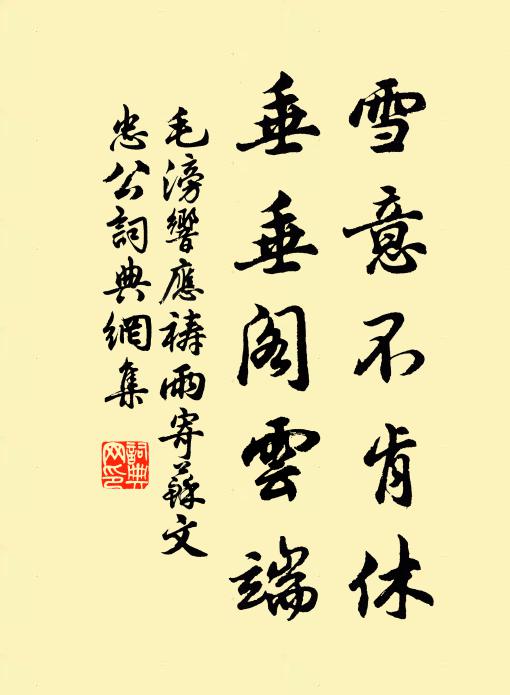 雪意不肯休
垂垂阁雲端
毛滂響應禱雨寄蘇文
忠公詞典網集
詞典
网印